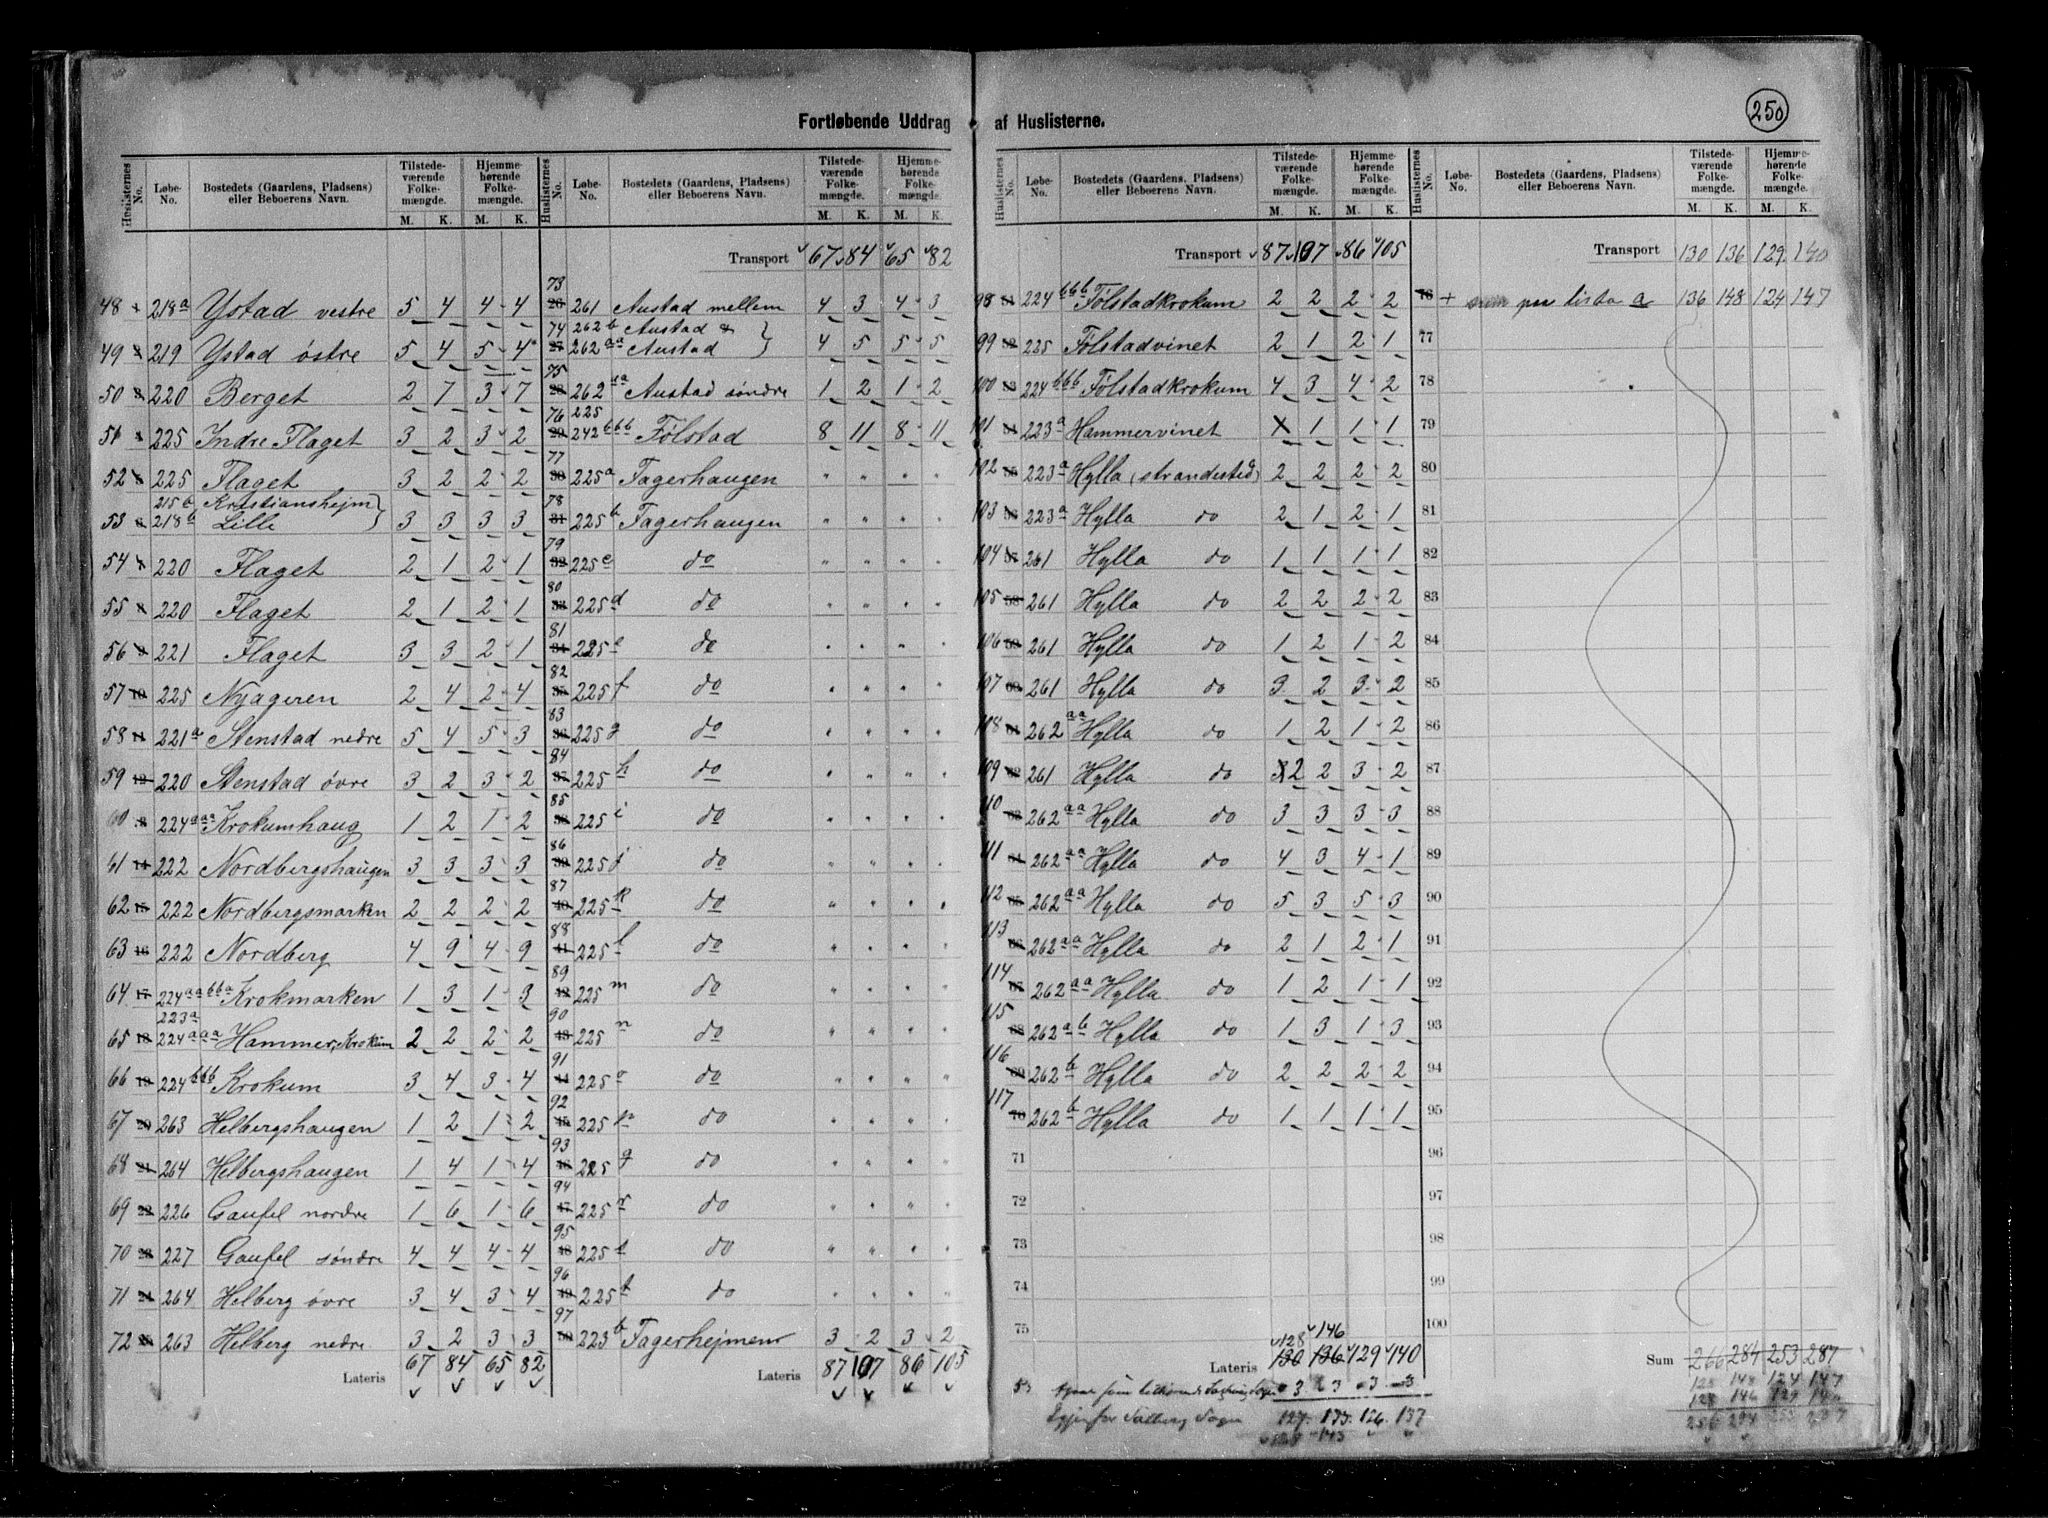 250
Fortløbende Uddrag af Huslisterne.
Huslisternes No. Løbe-No. Bostedets (Gaardens, Pladsens) eller Beboerens Navn. Tilstedeværende Folkemængde. M. K. Hjemmehørende Folkemængde. M. K.
48 218a Ystad vestre 5 4 4 4
49 219 Ystad östre 5 4 5 4
50 220 Berget 2 7 3 7
51 225 Indre Flaget 3 2 3 2
52 225 Flaget 3 2 2 2
215b Kristianshejm
53 218b Lille 3 3 3 3
54 220 Flaget 2 1 2 1
55 220 Flaget 2 1 2 1
56 221 Flaget 3 3 2 1
57 225 Nyageren 2 4 2 4
58 221a Stenstad nedre 5 4 5 3
59 220 Stenstad övre 3 2 3 2
60 224aaa Krokumhaug 1 2 1 2
61 222 Nordbergshaugen 3 3 3 3
62 222 Nordbergsmarken 2 2 2 2
63 222 Nordberg 4 9 4 9
64 224aabba Krokmarken 1 3 1 3
223a
65 224aaa Hammer, Krokum 2 2 2 2
66 224bbb Krokum 3 4 3 4
67 263 Helbergshaugen 1 2 1 2
68 264 Helbergshaugen 1 4 1 4
69 226 Gaufel nordre 1 6 1 6
70 227 Gaufel söndre 4 4 4 4
71 264 Helberg övre 3 4 3 4
72 263 Helberg nedre 3 2 3 3
Lateris 67 84 65 82
Huslisternes No. Løbe-No. Bostedets (Gaardens, Pladsens) eller Beboerens Navn. Tilstedeværende Folkemængde. M. K. Hjemmehørende Folkemængde. M. K.
Transport 67 84 65 82
73 261 Austad mellem 4 3 4 3
74 262b Austad &
262aa Austad 4 5 5 5
75 262 Austad söndre 1 2 1 2
225
76 242bbb Fölstad 8 11 8 11
77 225a Fagerhaugen " " " "
78 225b Fagerhaugen " " " "
79 225c do " " " "
80 225d do " " " "
81 225e do " " " "
82 225f do " " " "
83 225g do " " " "
84 225h do " " " "
85 225i do " " " "
86 225j do " " " "
87 225k do " " " "
88 225l do " " " "
89 225m do " " " "
90 225n do " " " "
91 225o do " " " "
92 225p do " " " "
93 225q do " " " "
94 225r do " " " "
95 225 do " " " "
96 225t do " " " "
97 223b Fagerhejmen 3 2 3 2
Lateris 87 107 86 105
Huslisternes No. Løbe-No. Bostedets (Gaardens, Pladsens) eller Beboerens Navn. Tilstedeværende Folkemængde. M. K. Hjemmehørende Folkemængde. M. K.
Transport 87 107 86 105
98 51 224bbb Fölstadkrokum 2 2 2 2
99 52 225 Fölstadvinet 2 1 2 1
100 53 224bbb Fölstadkrokum 4 3 4 2
101 54 223a Hammervinet 1 1 1
102 55 223a Hylla (strandsted) 2 2 2 2
103 56 223a Hylla do 2 1 2 1
104 57 261 Hylla do 1 1 1 1
105 58 261 Hylla do 2 2 2 2
106 59 261 Hylla do 1 2 1 2
107 60 261 Hylla do 3 2 3 2
108 61 262aa Hylla do 1 2 1 2
109 62 261 Hylla do 2 2 3 2
110 63 262aa Hylla do 3 3 3 3
111 64 262aa Hylla do 4 3 4 1
112 65 262aa Hylla do 5 3 5 3
113 66 262aa Hylla do 2 1 2 1
114 67 262aa Hylla do 1 2 1 1
115 68 262ab Hylla do 1 3 1 3
116 69 262b Hylla do 2 2 2 2
117 70 262b Hylla do 1 1 1 1
71
72
73
74
75
128 146
Lateris 130 136 129 140
3 3 3 3
Sogn 127 133 126 137
143
Huslisternes No. Løbe-No. Bostedets (Gaardens, Pladsens) eller Beboerens Navn. Tilstedeværende Folkemængde. M. K. Hjemmehørende Folkemængde. M. K.
Transport 130 136 129 140
76 + sum paa lista a 136 148 124 147
77
78
79
80
81
82
83
84
85
86
87
88
89
90
91
92
93
94
95
96
97
98
99
100
Sum 266 284 253 287
128 148 124 147
128 146 129 140
256 294 253 287